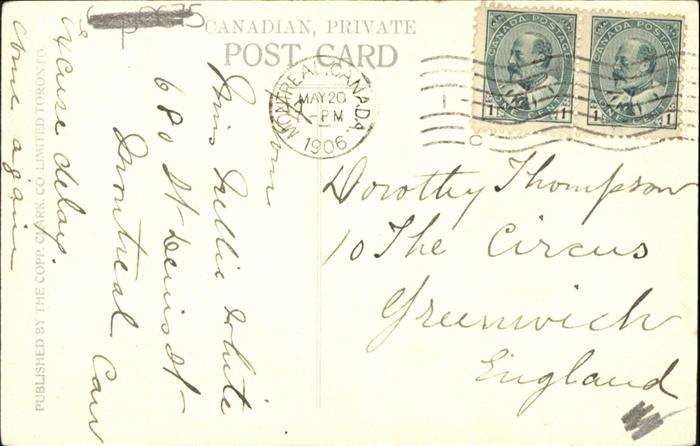 CANADIAN, PRIVATE
POST CARD
MONTREAL, CANADA.
MAY 20
-PM
1906
CANADA POSTAGE
ONE CENT
1 1
CANADA POSTAGE
ONE CENT
1 1
Dorothy Thompson
10 The Circus
Greenwich
England
from
Miss Nellie White
680 St Denis St
Montreal Can
Excuse delay.
come again
PUBLISHED BY THE COPP, CLARK CO. LIMITED TORONTO.